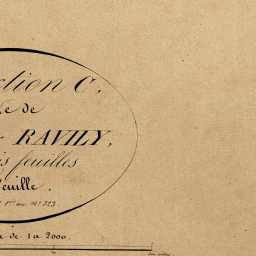 ction C.
de
RAVILY,
is feuilles
euille.
1re au No 323.
de 1 a 2000.